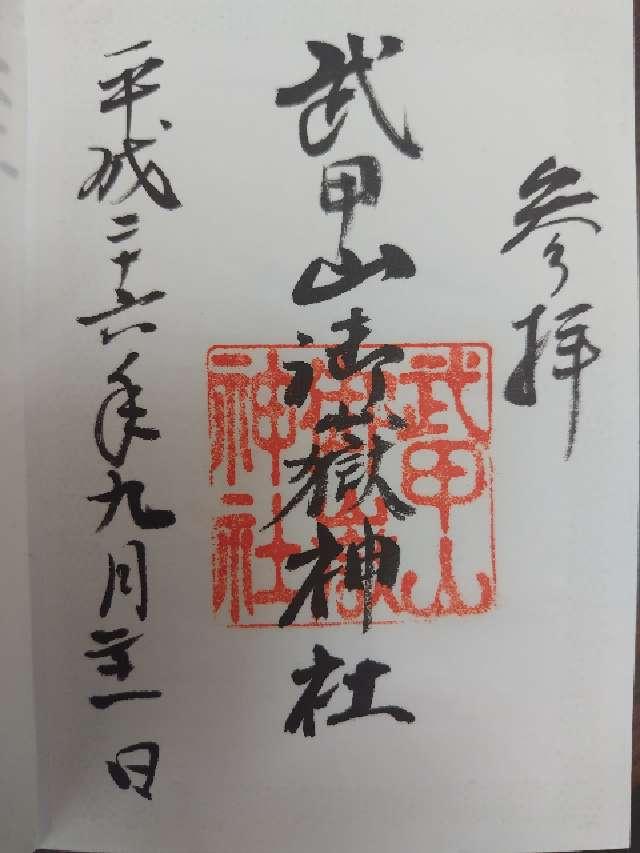 参拝
武甲山御嶽神社
平成二十六年九月二十一日
武甲山
御嶽
神社